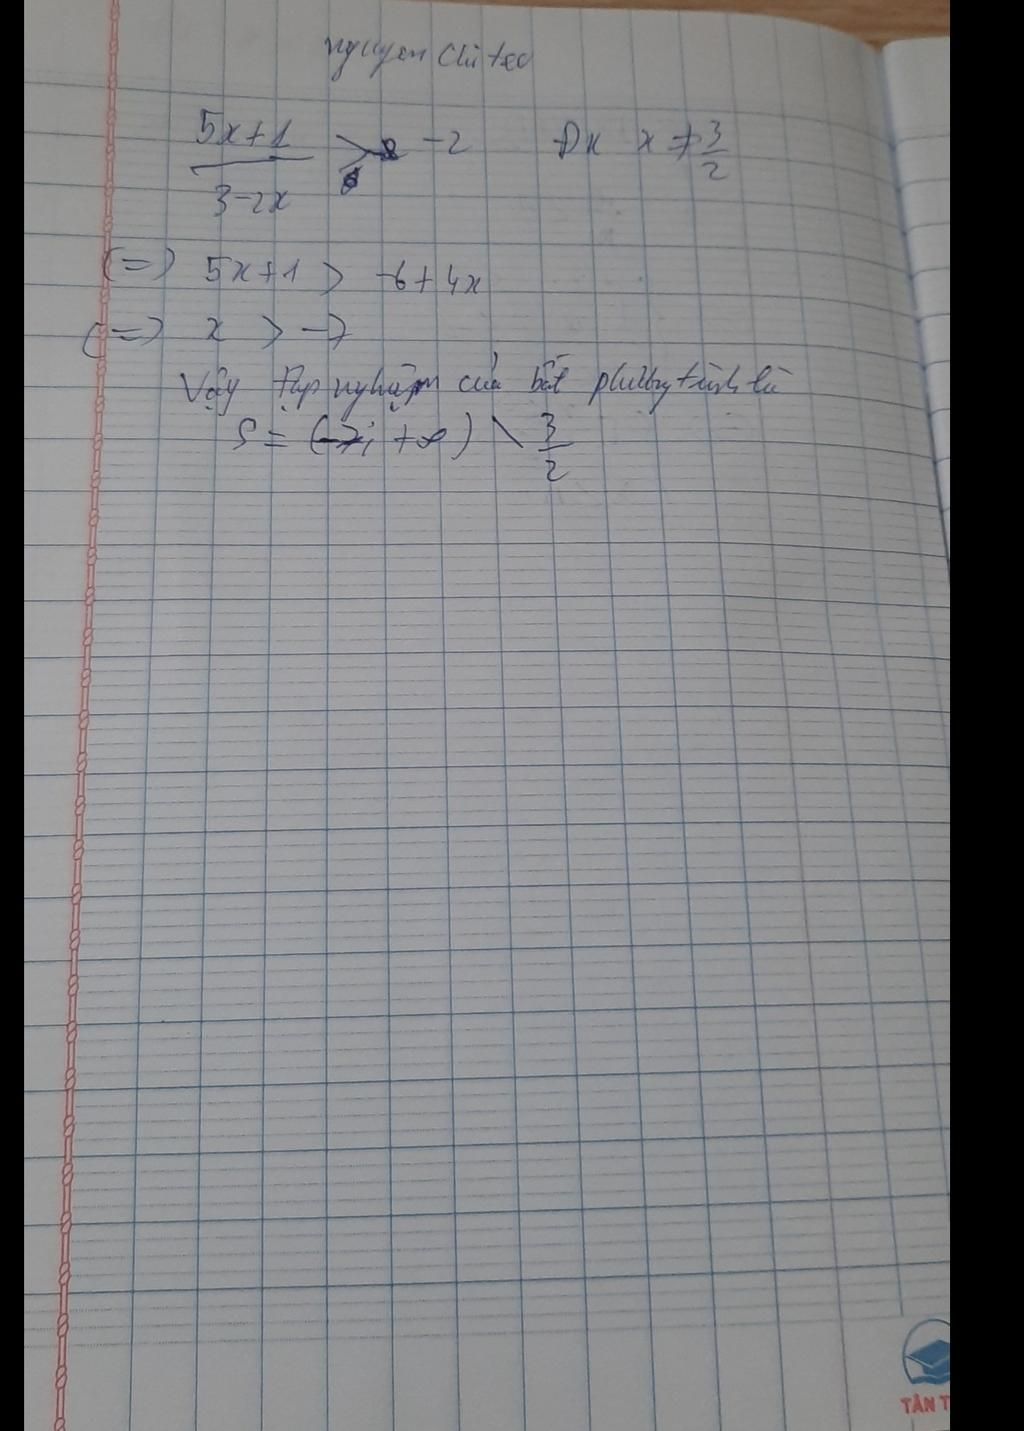 5x+1 / 3-2x > -2 ĐK x ≠ 3/2
(=) 5x+1 > -6+4x
(=) x > -7
Vậy tập nghiệm của bất phương trình là
S = (-7; +∞) \ 3/2
TÂN T